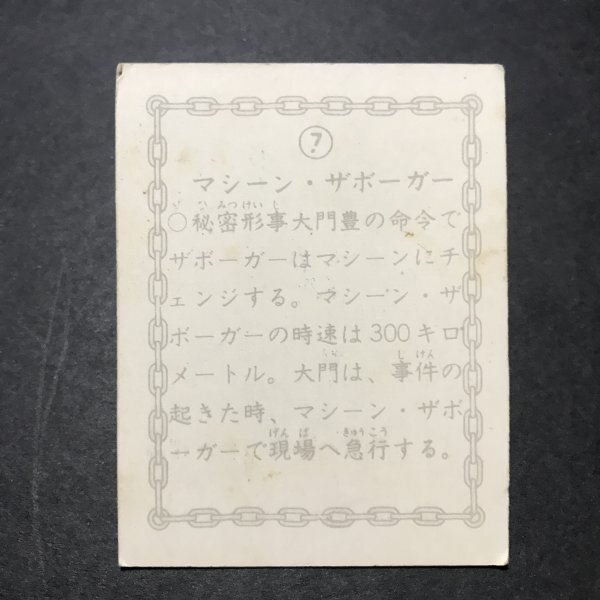 7
マシーン・ザボーガー
○秘密形事大門豊の命令で
ザボーガーはマシーンにチ
ェンジする。マシーン・ザ
ボーガーの時速は300キロ
メートル。大門は、事件の
起きた時、マシーン・ザボ
ーガーで現場へ急行する。